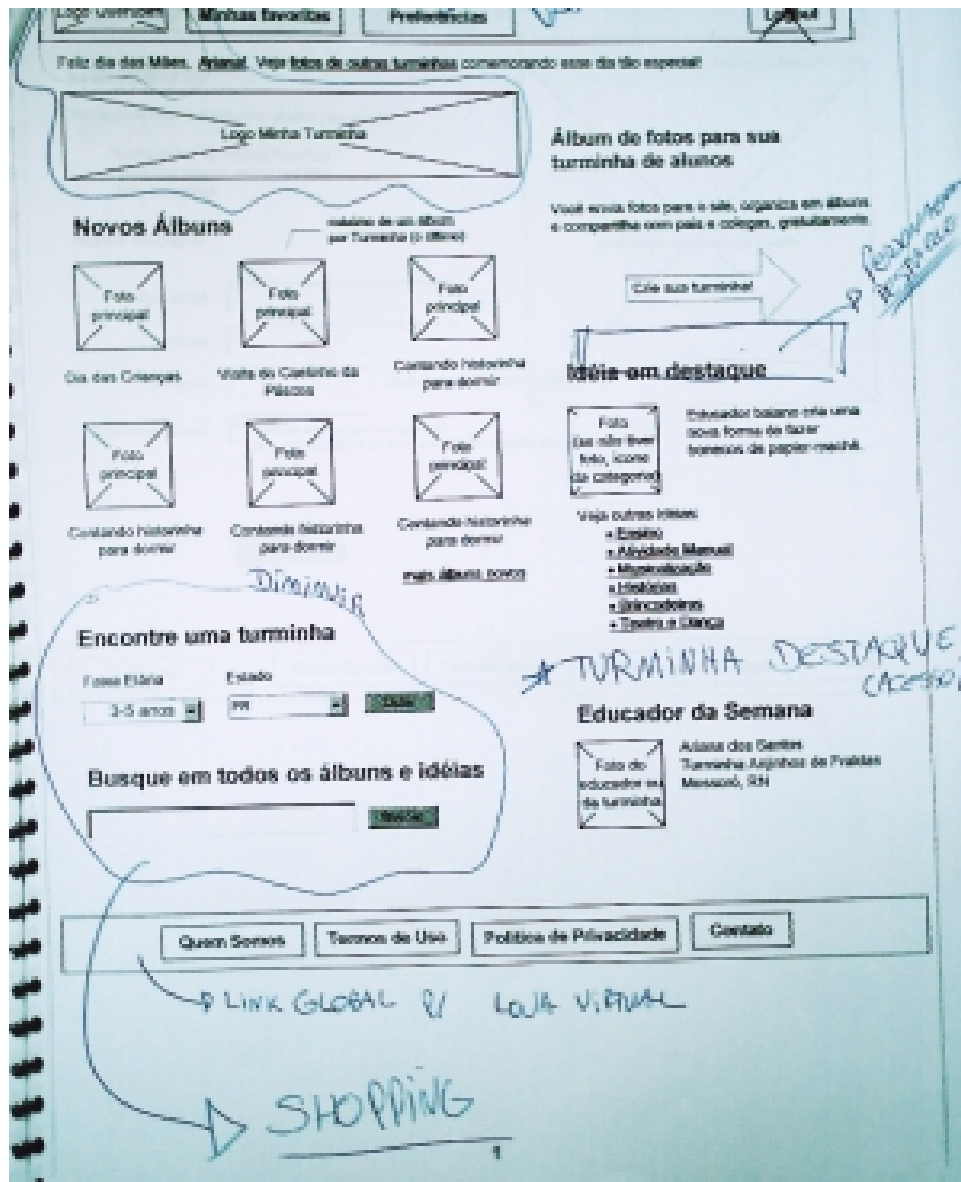 Minhas favoritas
Preferências
Logout
Feliz dia das Mães, Ariana! Veja fotos de outras turminhas comemorando esse dia tão especial!
Logo Minha Turminha
Álbum de fotos para sua
turminha de alunos
Você envia fotos para o site, organiza em álbuns
e compartilha com pais e colegas, gratuitamente.
Crie sua turminha!
DESTAQUE
Novos Álbuns
máximo de um álbum
por Turminha (o último)
Foto
principal
Foto
principal
Foto
principal
Dia das Crianças
Visita do Coelhinho da
Páscoa
Contando historinha
para dormir
Foto
principal
Foto
principal
Foto
principal
Contando historinha
para dormir
Contando historinha
para dormir
Contando historinha
para dormir
mais álbuns novos
Idéia em destaque
Foto
(se não tiver
foto, ícone
da categoria)
Educador baiano cria uma
nova forma de fazer
bonecos de papier-machê.
Veja outras idéias:
• Ensino
• Atividade Manual
• Musicalização
• Histórias
• Brincadeiras
• Teatro e Dança
DIMINUIR
Encontre uma turminha
Faixa Etária
Estado
3-5 anos
PR
Busque em todos os álbuns e idéias
TURMINHA DESTAQUE
Educador da Semana
Foto do
educador ou
da turminha
Ariana dos Santos
Turminha Anjinhos de Fraldas
Mossoró, RN
Quem Somos
Termos de Uso
Política de Privacidade
Contato
LINK GLOBAL P/ LOJA VIRTUAL
SHOPPING
1